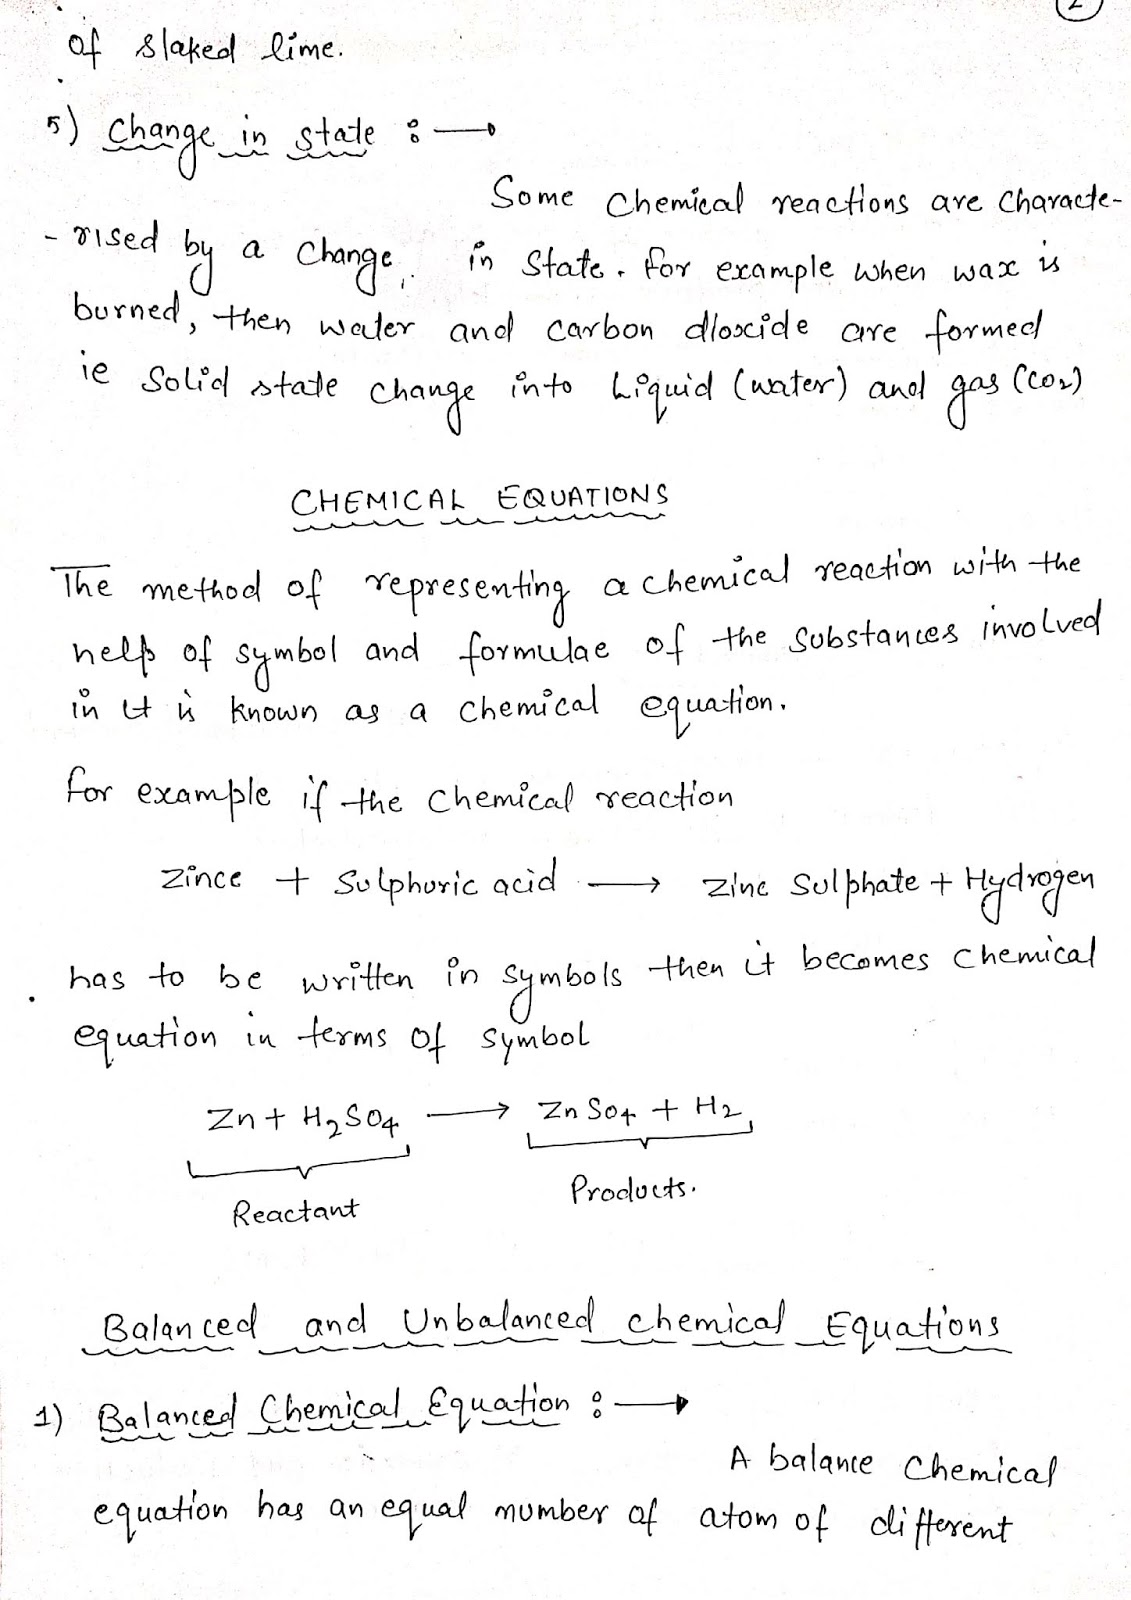 2
of slaked lime.
5) Change in state :⟶
Some Chemical reactions are Characte-
-rised by a Change in State. For example when wax is
burned, then water and carbon dioxide are formed
ie Solid state change into Liquid (water) and gas (CO2)
CHEMICAL EQUATIONS
The method of representing a chemical reaction with the
help of symbol and formulae of the substances involved
in it is known as a chemical equation.
For example if the chemical reaction
Zince + Sulphuric acid ⟶ Zinc Sulphate + Hydrogen
has to be written in symbols then it becomes chemical
equation in terms of symbol
Zn + H2SO4 ⟶ ZnSO4 + H2
Reactant Products.
Balanced and Unbalanced chemical Equations
1) Balanced Chemical Equation :⟶
A balance Chemical
equation has an equal number of atom of different